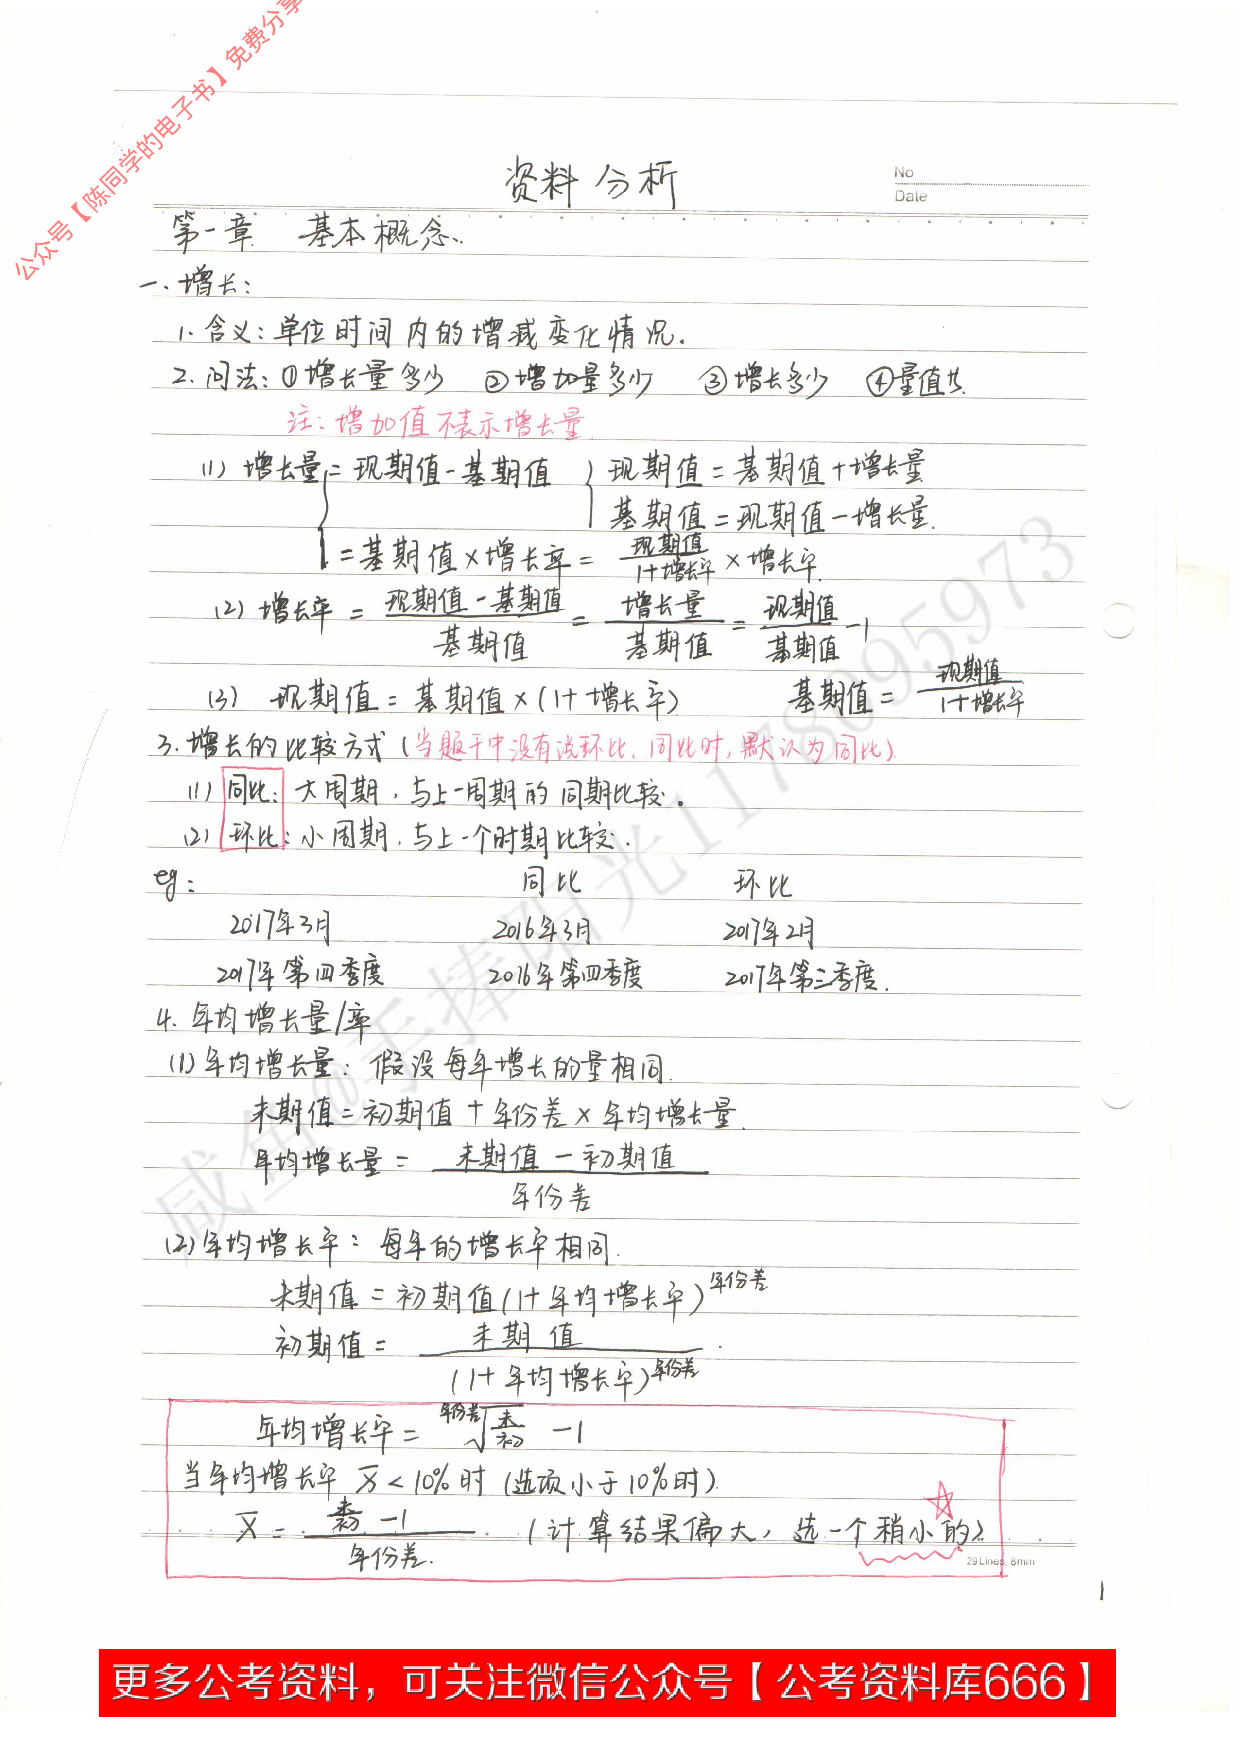 公众号【陈同学的电子书】免费分享
资料分析
No
Date
第一章 基本概念.
一、增长:
1. 含义: 单位时间内的增减变化情况.
2. 问法: ①增长量多少 ②增加量多少 ③增长多少 ④量值共
注: 增加值不表示增长量.
(1) 增长量 = 现期值 - 基期值 } 现期值 = 基期值 + 增长量
基期值 = 现期值 - 增长量.
= 基期值 × 增长率 = 现期值/1+增长率 × 增长率.
(2) 增长率 = 现期值 - 基期值/基期值 = 增长量/基期值 = 现期值/基期值 - 1
(3) 现期值 = 基期值 × (1+增长率) 基期值 = 现期值/1+增长率
3. 增长的比较方式 (当题干中没有说环比、同比时, 默认为同比)
(1) 同比: 大周期, 与上一周期的同期比较.
(2) 环比: 小周期, 与上一个时期比较.
eg: 同比 环比
2017年3月 2016年3月 2017年2月
2017年第四季度 2016年第四季度 2017年第三季度.
4. 年均增长量/率
(1) 年均增长量: 假设每年增长的量相同.
末期值 = 初期值 + 年份差 × 年均增长量.
年均增长量 = 末期值 - 初期值/年份差
(2) 年均增长率: 每年的增长率相同.
末期值 = 初期值(1+年均增长率)^年份差
初期值 = 末期值/(1+年均增长率)^年份差.
年均增长率 = 年份差√末/初 - 1
当年均增长率 x̄ < 10%时 (选项小于10%时).
x̄ = 末/初 - 1/年份差. (计算结果偏大, 选一个稍小的)
29Lines, 8mm
1
咸鱼@手捧阳光1178095973
更多公考资料，可关注微信公众号【公考资料库666】